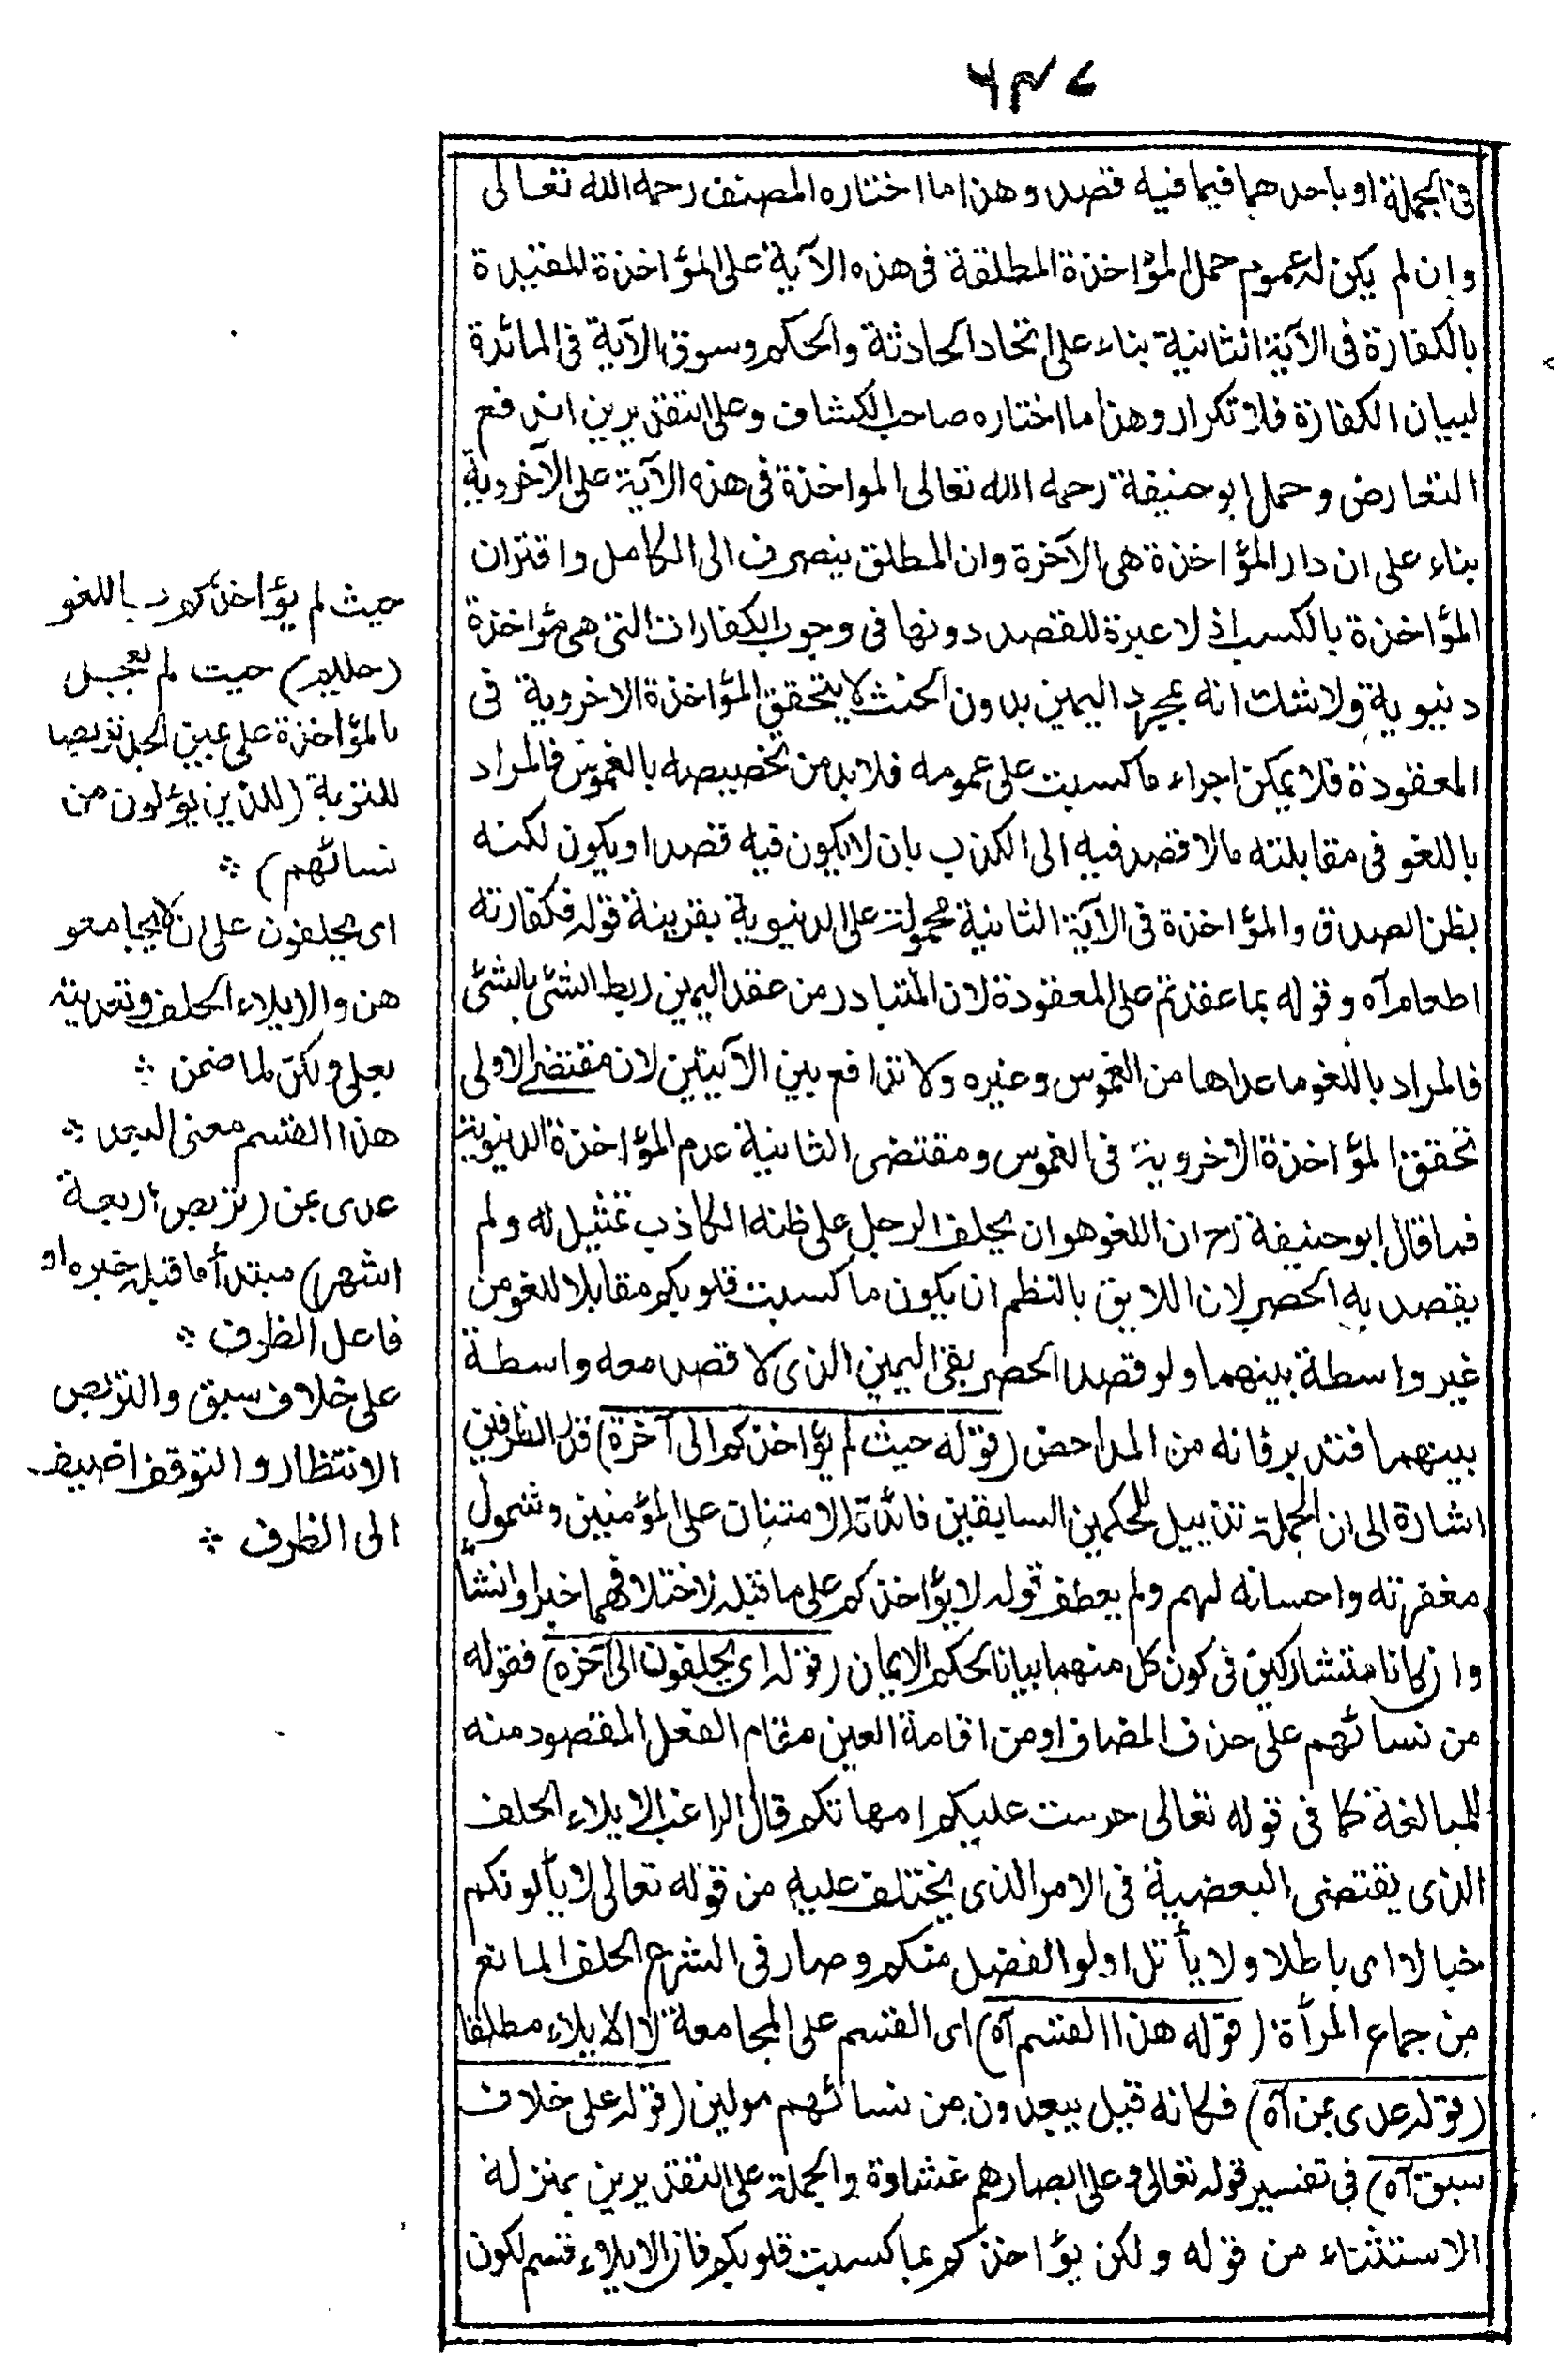 في الجملة او باحدهما فيما فيه قصد وهذا ما اختاره المصنف رحمه الله تعالى
وإن لم يكن له عموم حمل المؤاخذة المطلقة في هذه الآية على المؤاخذة المقيدة
بالكفارة في الآية الثانية بناء على اتحاد الحادثة والحكم وسوق الآية في المائدة
لبيان الكفارة فلا تكرار وهذا ما اختاره صاحب الكشاف وعلى التقديرين اندفع
التعارض وحمل ابو حنيفة رحمه الله تعالى المواخذة في هذه الآية على الآخروية
بناء على ان دار المؤاخذة هي الآخرة وان المطلق ينصرف الى الكامل واقتران
المؤاخذة بالكسب اذ لا عبرة للقصد دونها في وجوب الكفارات التي هي مؤاخذة
دنيوية ولا شك انه بمجرد اليمين بدون الحنث لا يتحقق المؤاخذة الاخروية في
المعقودة فلا يمكن اجراء ما كسبت على عمومه فلا بد من تخصيصه بالغموس فالمراد
باللغو في مقابلته ما لا قصد فيه الى الكذب بان لا يكون فيه قصد او يكون لكنه
بظن الصدق والمؤاخذة في الآية الثانية محمولة على الدنيوية بقرينة قوله فكفارته
اطعام آه وقوله بما عقدتم على المعقودة لان المتبادر من عقد اليمين ربط الشئ بالشئ
فالمراد باللغو ما عداها من الغموس وغيره ولا تدافع بين الآيتين لان مقتضى الاولى
تحقق المؤاخذة الاخروية في الغموس ومقتضى الثانية عدم المؤاخذة الدنيوية
فما قال ابو حنيفة رح ان اللغو هو ان يحلف الرجل على ظنه الكاذب تمثيل له ولم
يقصد به الحصر لان اللايق بالنظم ان يكون ما كسبت قلوبكم مقابلا للغو من
غير واسطة بينهما ولو قصد الحصر بقي اليمين الذي لا قصد معه واسطة
بينهما فتدبر فانه من المداحض (قوله حيث لم يؤاخذكم الى آخره) قدر الظرفين
اشارة الى ان الجملة تذييل للحكمين السابقين فائدته الامتنان على المؤمنين وشمول
مغفرته واحسانه لهم ولم يعطف قوله لا يؤاخذكم على ما قبله لاختلافهما خبرا وانشأ
وان كانا متشاركين في كون كل منهما بيانا لحكم الايمان (قوله اي يحلفون الى آخره) فقوله
من نسائهم على حذف المضاف او من اقامة العين مقام الفعل المقصود منه
للمبالغة كما في قوله تعالى حرمت عليكم امهاتكم قال الراغب الايلاء الحلف
الذي يقتضى البعضية في الامر الذي يختلف عليه من قوله تعالى لا يألونكم
خبالا اى باطلا ولا يأتل اولوا الفضل منكم وصار في الشرع الحلف المانع
من جماع المرأة (قوله هذا القسم آه) اى القسم على المجامعة لا الايلاء مطلقا
(قوله عدى بمن آه) فكانه قيل يبعدون من نسائهم مولين (قوله على خلاف
سبق آه) في تفسير قوله تعالى وعلى ابصارهم غشاوة والجملة على التقديرين بمنزلة
الاستثناء من قوله ولكن يؤاخذكم بما كسبت قلوبكم فان الايلاء قسم لكون
حيث لم يؤاخذكم باللغو
(حليم) حيث لم يعجل
بالمؤاخذة على يمين الجد تربصا
للتوبة (للذين يؤلون من
نسائهم) ※
اى يحلفون على ان لا يجامعو
هن والايلاء الحلف وتعديته
بعلى ولكن لما ضمن ※
هذا القسم معنى البعد ※
عدى بمن (تربص اربعة
اشهر) مبتدأ ما قبله خبره او
فاعل الظرف ※
على خلاف سبق والتربص
الانتظار والتوقف اضيف
الى الظرف ※